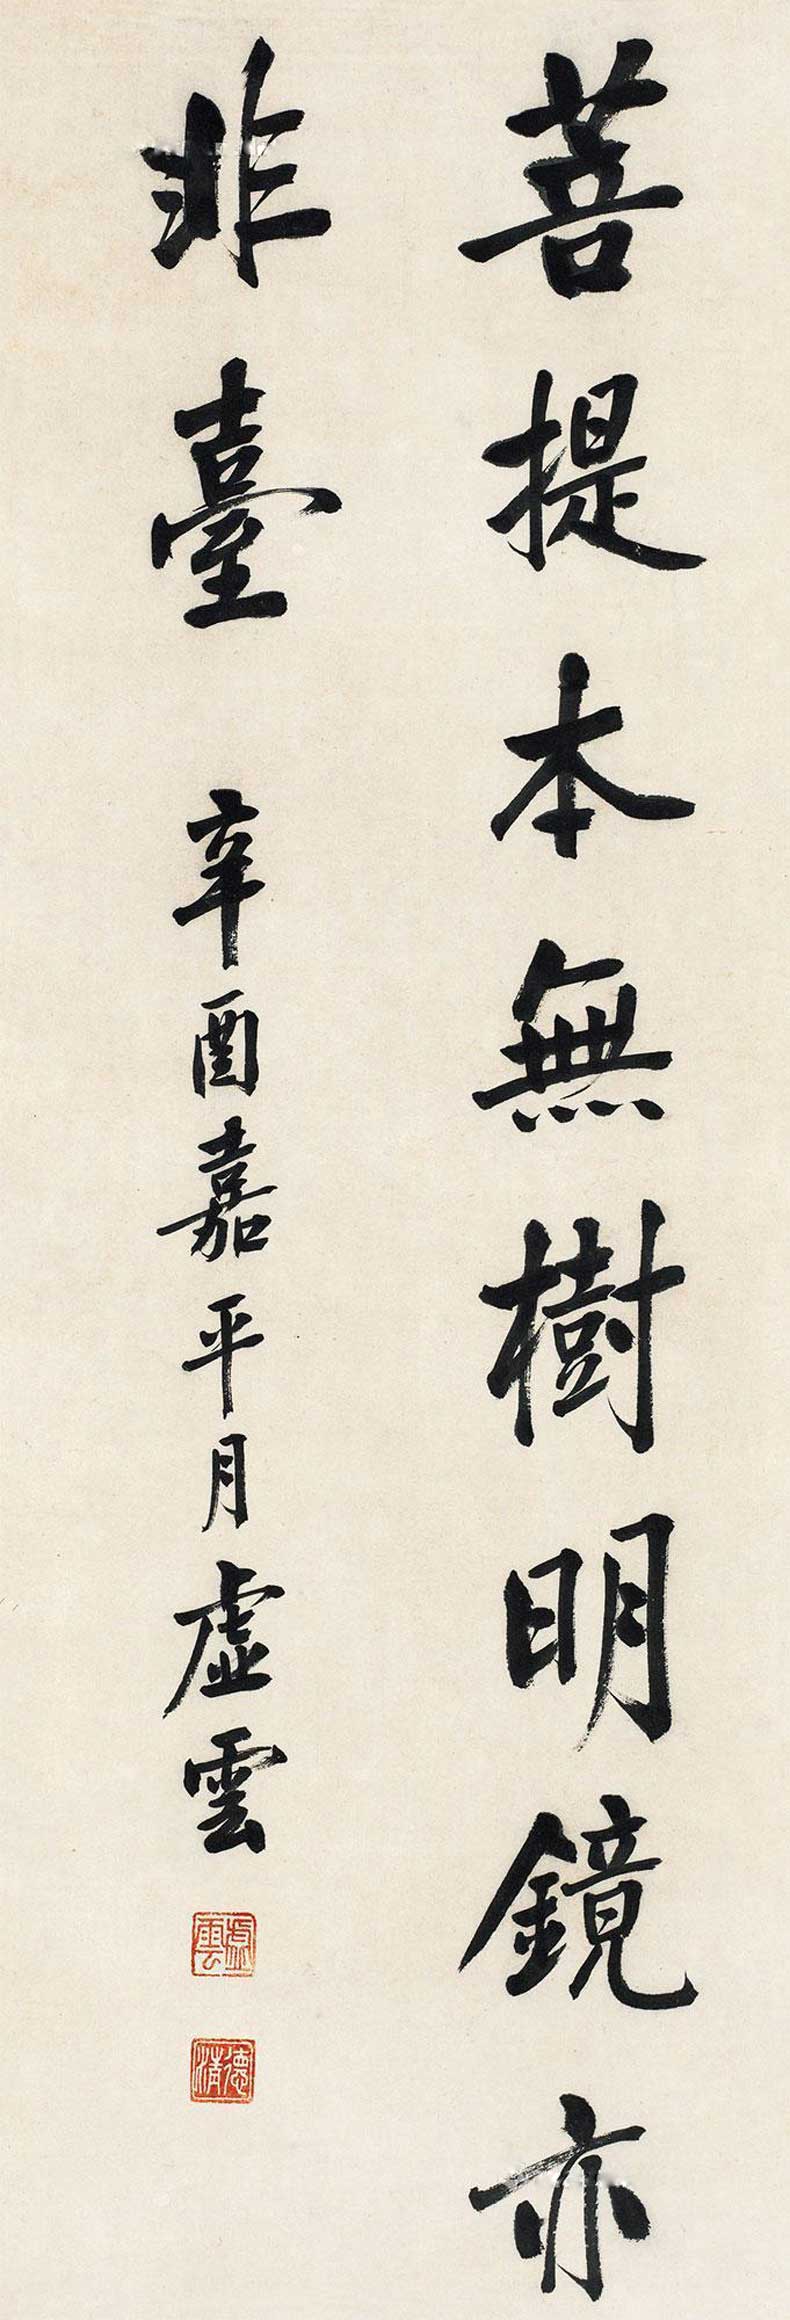 菩提本無樹明鏡亦
非臺
辛酉嘉平月虛雲
虛雲
德清